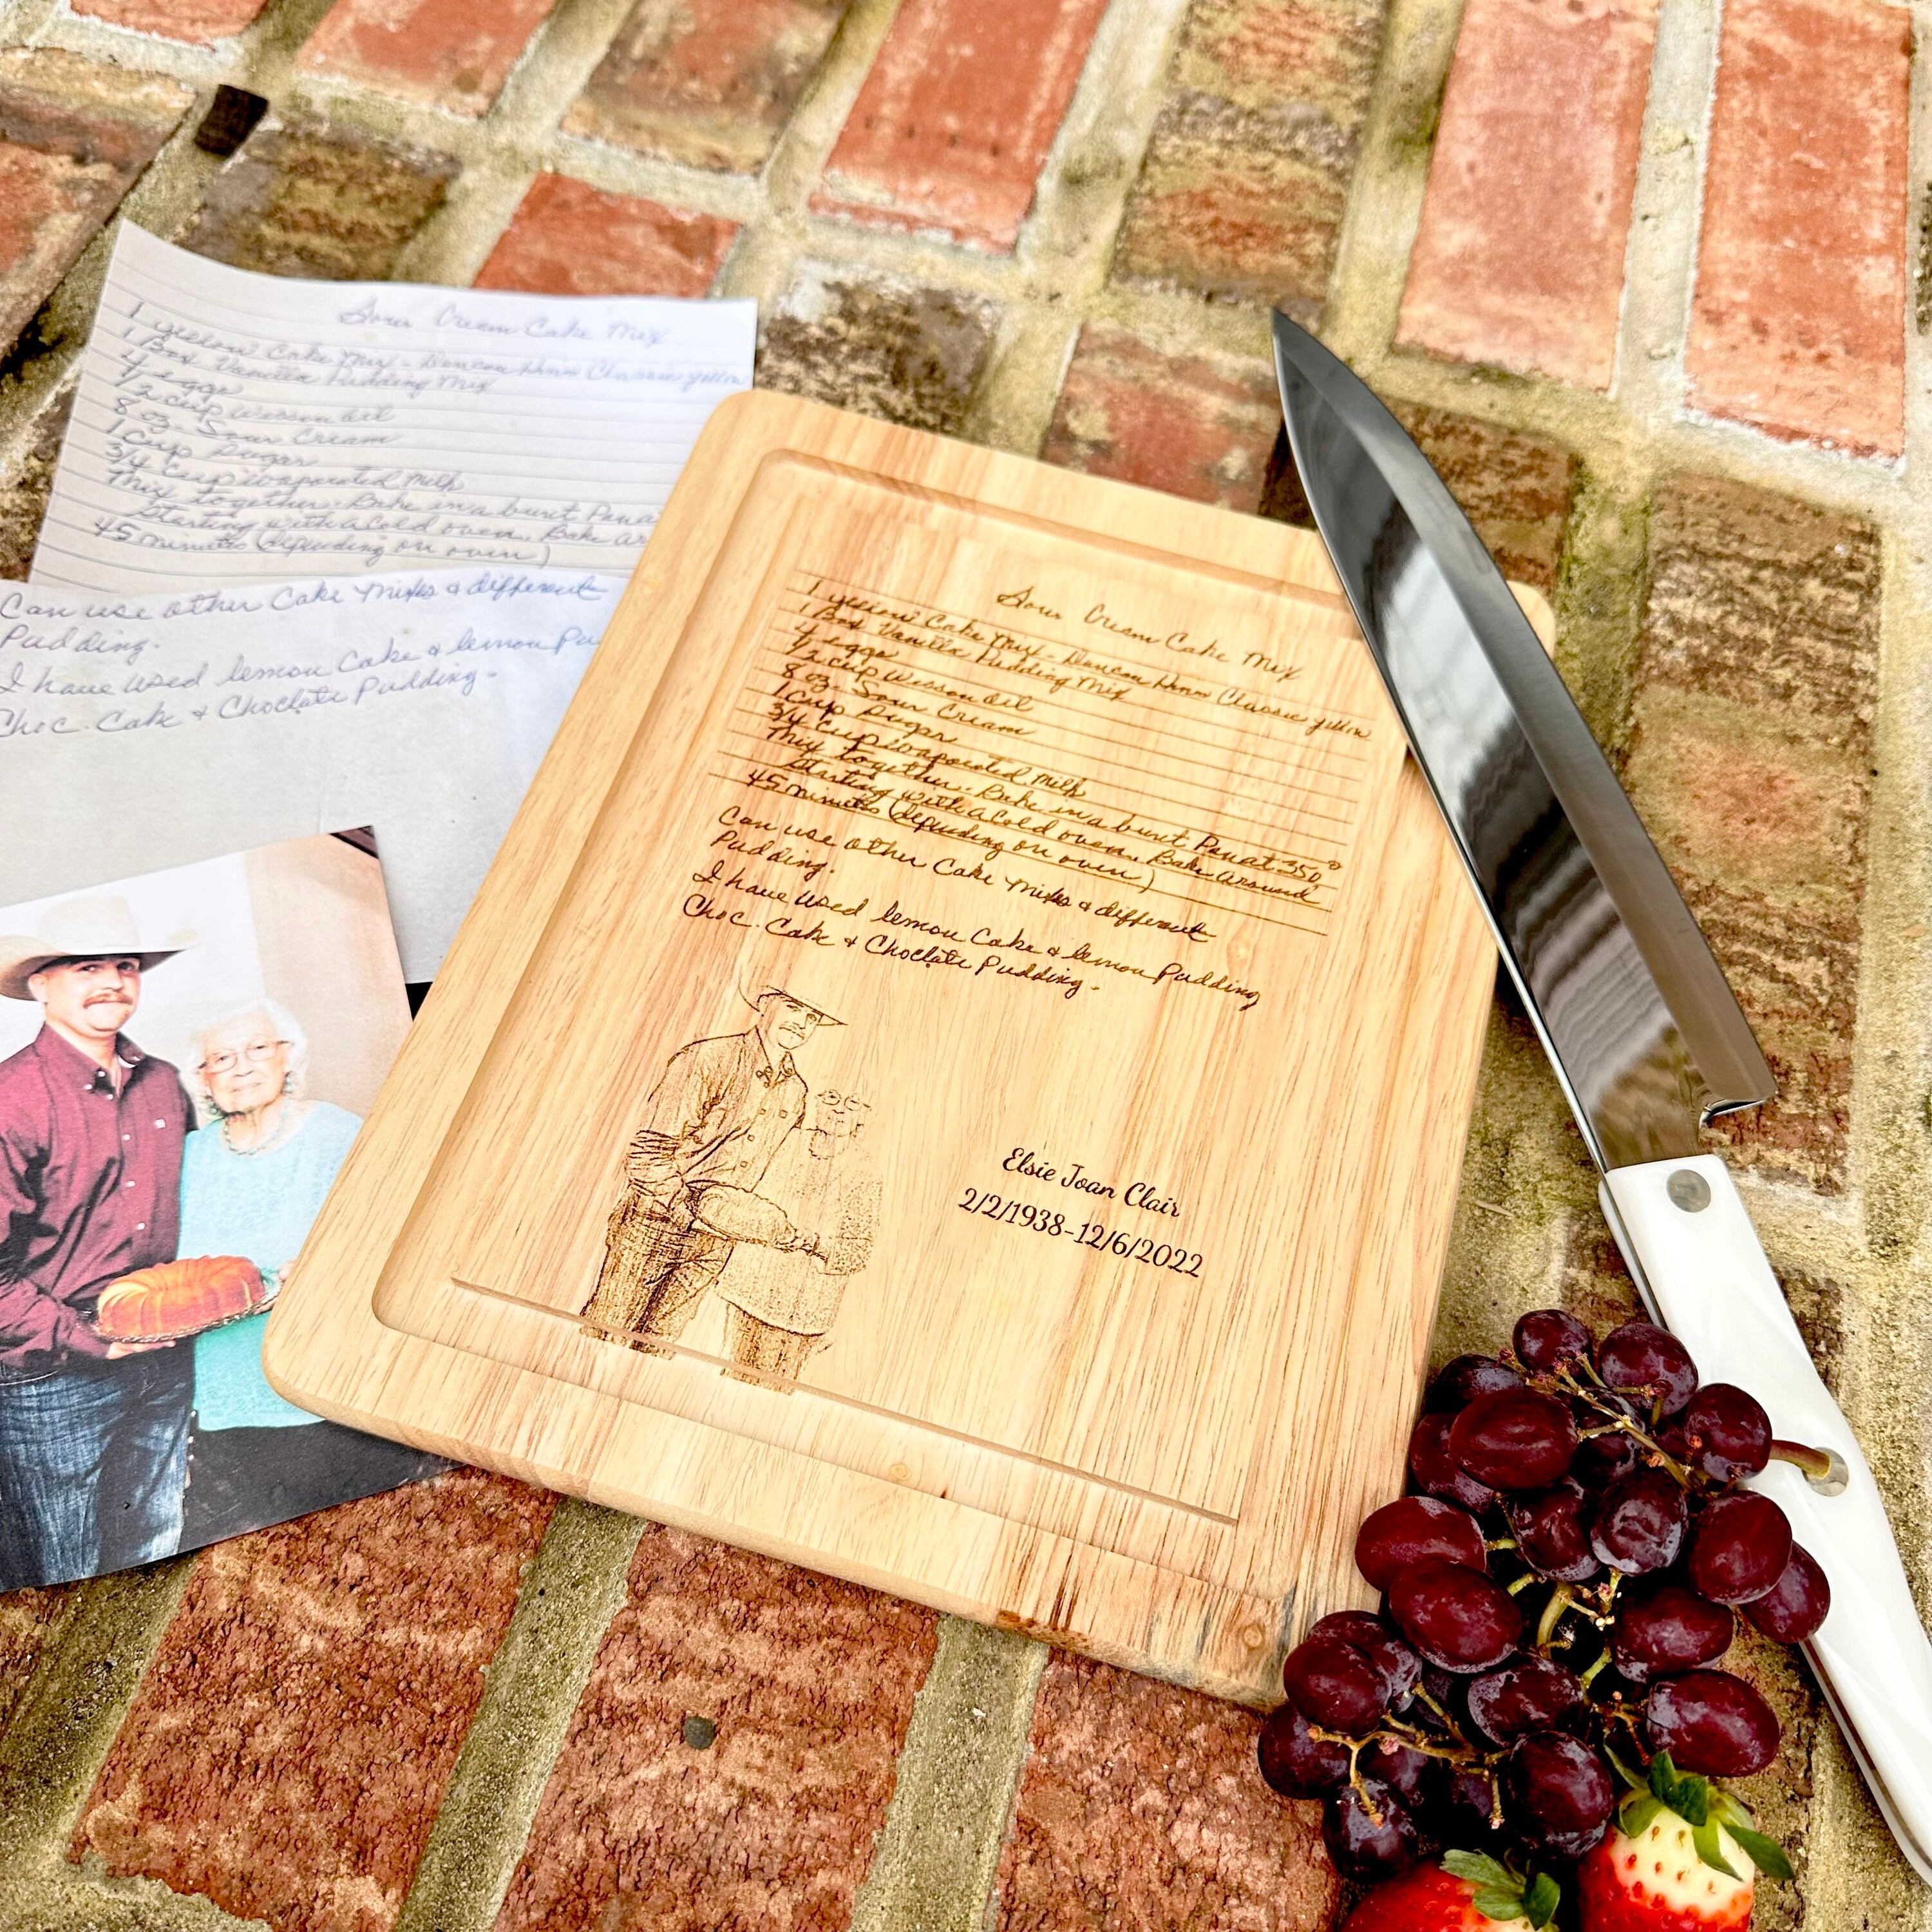 Sour Cream Cake Mix
1 yellow Cake Mix - Duncan Hines Classic yellow
1 Box Vanilla Pudding Mix
4 eggs
1/2 cup Wesson oil
8 oz. Sour Cream
1 Cup Sugar
3/4 Cup evaporated Milk
Mix together. Bake in a bunt Pan at
Starting with a Cold oven. Bake ar
45 minutes (depending on oven)
Can use other Cake Mixes & different
Pudding.
I have used lemon Cake & lemon Pu
Choc. Cake & Choclate Pudding.
Sour Cream Cake Mix
1 yellow Cake Mix - Duncan Hines Classic yellow
1 Box Vanilla Pudding Mix
4 eggs
1/2 cup Wesson oil
8 oz. Sour Cream
1 Cup Sugar
3/4 Cup evaporated Milk
Mix together. Bake in a bunt Pan at 350°
Starting with a Cold oven. Bake around
45 minutes (depending on oven)
Can use other Cake Mixes & different
Pudding.
I have used lemon Cake & lemon Pudding
Choc. Cake & Choclate Pudding.
Elsie Joan Clair
2/2/1938-12/6/2022